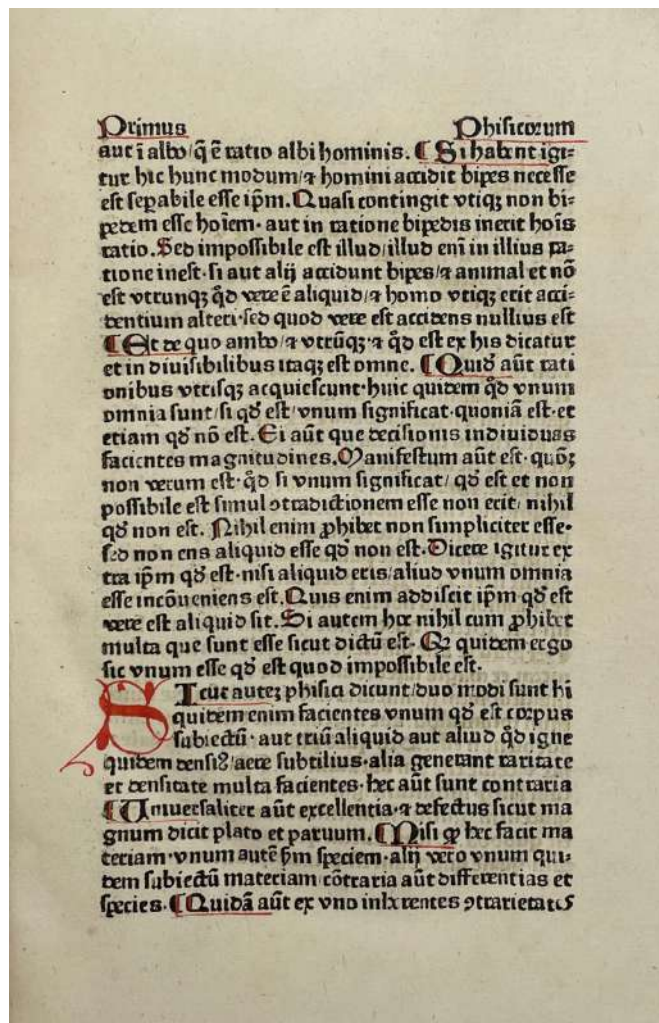 Primus Phisicorum
aut ī albo/q̄ ē ratio albi hominis. ¶ Si habent igi⸗
tur hic hunc modum/⁊ homini accidit bipes necesse
est sepabile esse ip̄m. Quasi contingit vtiqꝫ non bi⸗
pedem esse hoīem· aut in ratione bipedis inerit hoīs
ratio. Sed impossibile est illud/illud enī in illius ra⸗
tione inest· si aut alij accidunt bipes/⁊ animal et nō
est vtrunqꝫ q̄d vere ē aliquid/⁊ homo vtiqꝫ erit acci⸗
dentium alteri·sed quod vere est accidens nullius est
¶ Et de quo ambo/⁊ vtrūqꝫ·⁊ q̄d est ex his dicatur
et in diuisibilibus itaqꝫ est omne. ¶ Quidā aūt rati
onibus vtrisqꝫ acquiescunt·huic quidem q̄d vnum
omnia sunt/si qd̄ est/vnum significat·quoniā est·et
etiam qd̄ nō est. Ei aūt que decisionis indiuiduas
facientes magnitudines. Manifestum aūt est· quōꝫ
non verum est·q̄d si vnum significat/ qd̄ est et non
possibile est simul ꝯtradictionem esse non erit/ nihil
qd̄ non est. Nihil enim ꝓhibet non simpliciter esse·
sed non ens aliquid esse qd̄ non est. Dicere igitur ex
tra ip̄m qd̄ est·nisi aliquid eris/aliud vnum omnia
esse incōueniens est. Quis enim addiscit ip̄m qd̄ est
vere est aliquid sit. Si autem hoc nihil cum ꝓhibet
multa que sunt esse sicut dictū est. Qꝫ quidem ergo
sic vnum esse qd̄ est quod impossibile est.
SIcut auteꝫ phisici dicunt/duo modi sunt hi
quidem enim facientes vnum qd̄ est corpus
subiectū· aut triū aliquid aut aliud q̄d igne
quidem densiꝰ/aere subtilius·alia generant raritate
et densitate multa facientes· hec aūt sunt contraria
¶ Uniuersaliter aūt excellentia·⁊ defectus sicut ma
gnum dicit plato et paruum. ¶ Nisi ꝙ hec facit ma
teriam·vnum autē ẜm speciem·alij vero vnum qui⸗
dem subiectū materiam/cōtraria aūt differentias et
species. ¶ Quidā aūt ex vno inherentes ꝯtrarietates